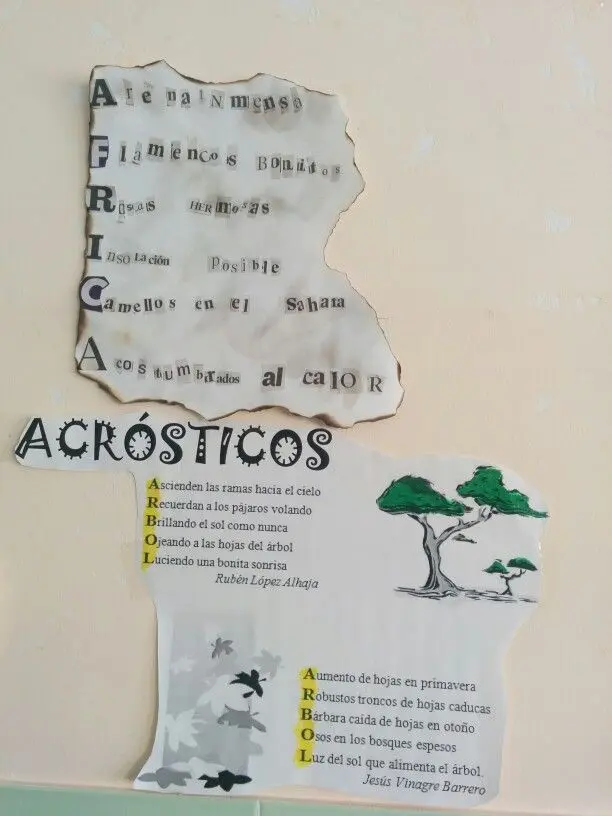 Arena INmensa
Flamencos Bonitos
Rosas HERmosas
Insolación Posible
Camellos en el Sahara
Acostumbrados al calOR
ACRÓSTICOS
Ascienden las ramas hacia el cielo
Recuerdan a los pájaros volando
Brillando el sol como nunca
Ojeando a las hojas del árbol
Luciendo una bonita sonrisa
Rubén López Alhaja
Aumento de hojas en primavera
Robustos troncos de hojas caducas
Bárbara caída de hojas en otoño
Osos en los bosques espesos
Luz del sol que alimenta el árbol.
Jesús Vinagre Barrero